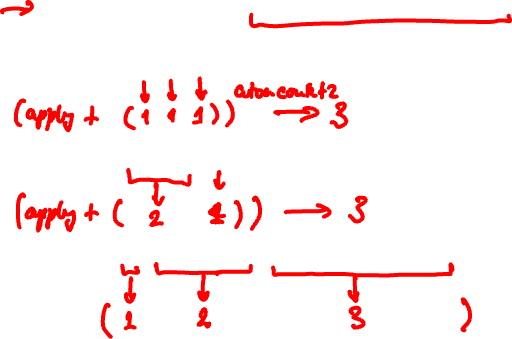 (apply + (1 1 1)) atomcount2 → 3
(apply + ( 2 1 )) → 3
( 1 2 3 )